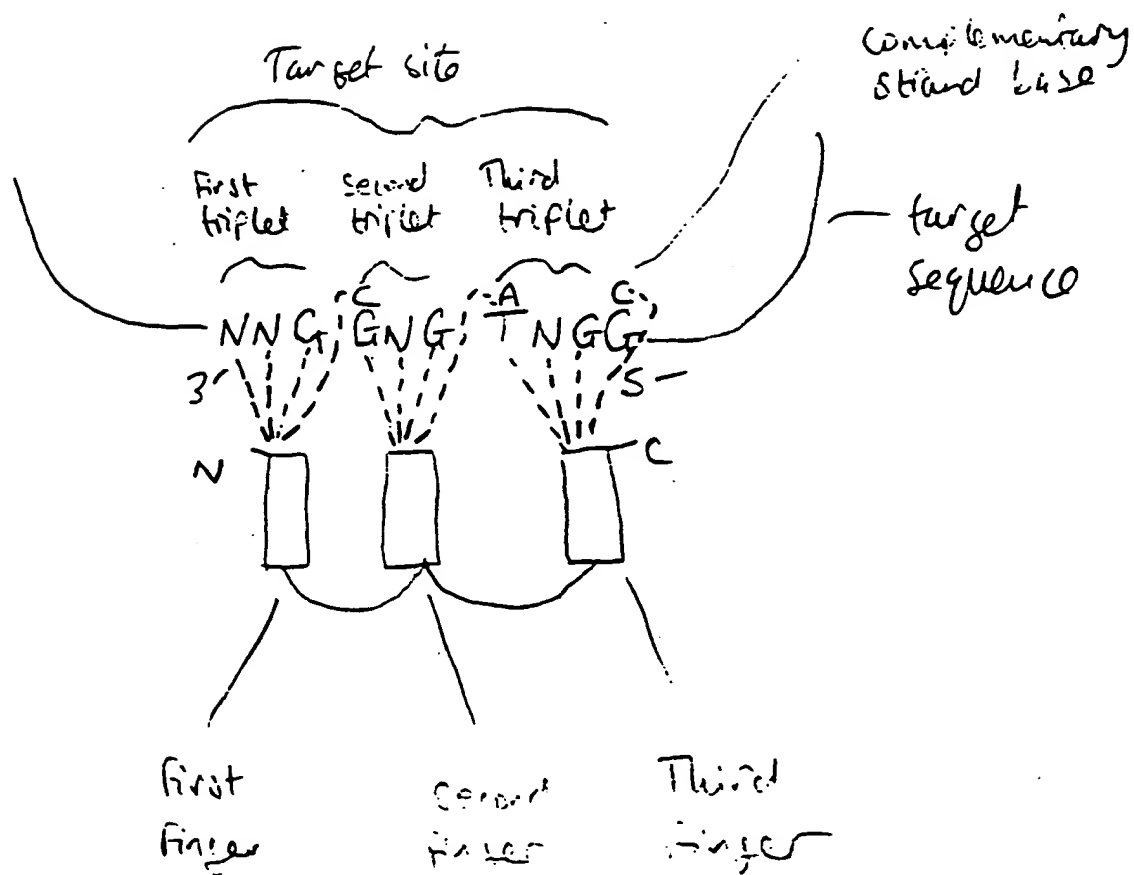 Target site
complementary
strand base
First
triplet
second
triplet
Third
triplet
target
sequence
C
A
C
NNG
GNG
TNGG
3'
5
N
C
First
Finger
second
finger
Third
finger